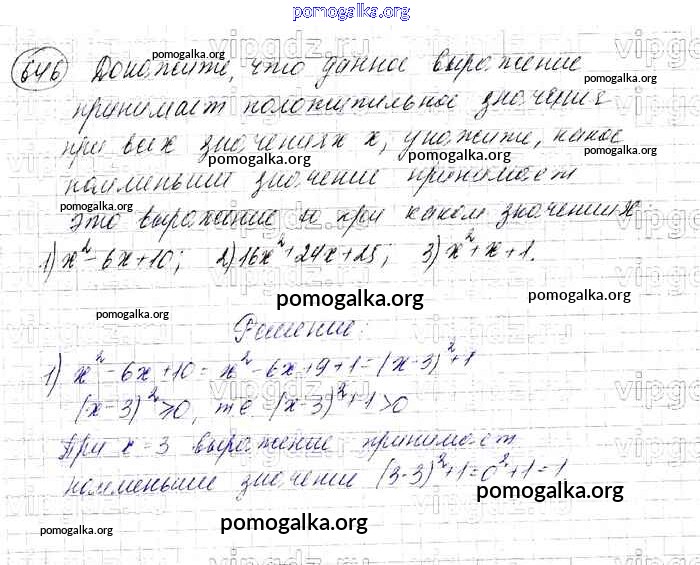 pomogalka.org
646 Докажите, что данное выражение
pomogalka.org
pomogalka.org
принимает положительное значения
при всех значениях x, укажите, какое
pomogalka.org
pomogalka.org
наименьшее значение принимает
pomogalka.org
pomogalka.org
это выражение и при каком значении x.
1) x² - 6x + 10; 2) 16x² + 24x + 25; 3) x² + x + 1.
pomogalka.org
pomogalka.org
pomogalka.org
Решение:
1) x² - 6x + 10 = x² - 6x + 9 + 1 = (x - 3)² + 1
pomogalka.org
(x - 3)² ≥ 0, т.е. (x - 3)² + 1 > 0
При x = 3 выражение принимает
pomogalka.org
pomogalka.org
наименьшие значение (3 - 3)² + 1 = 0² + 1 = 1
pomogalka.org
pomogalka.org
pomogalka.org
vipgdz.ru